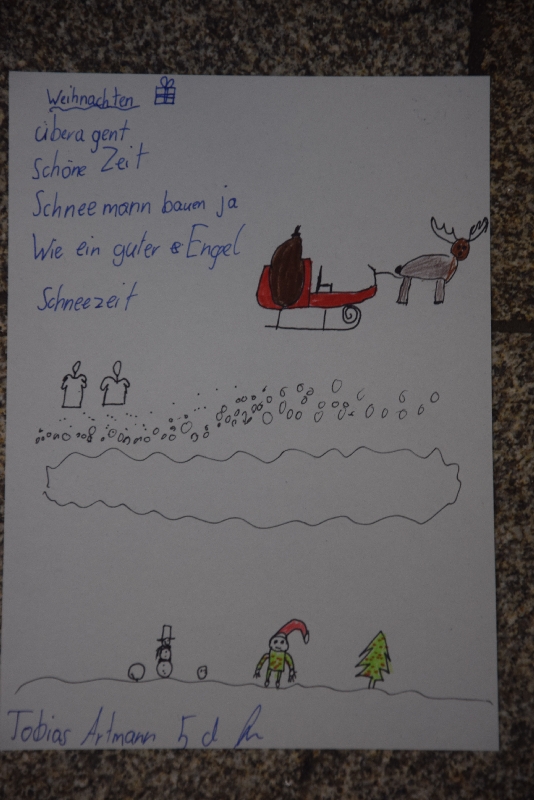 Weihnachten
überagent
Schöne Zeit
Schneemann bauen ja
Wie ein guter Engel
Schneezeit
Tobias Artmann 5 d